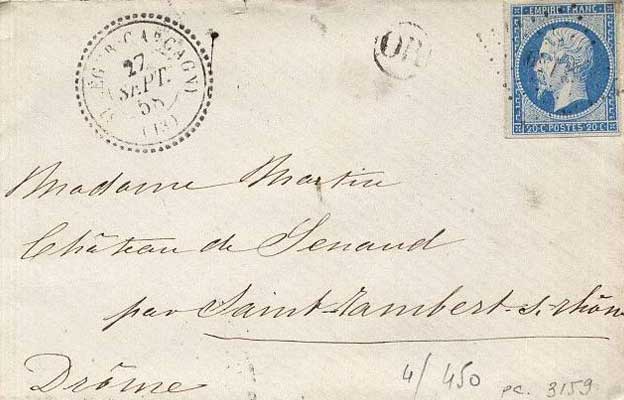 27
SEPT.
58
(12)
OR
EMPIRE FRANC
20 C POSTES 20 C
Madame Martin
Château de Senaud
par Saint-Rambert-s.-rhône
Drôme
4/ 450
pc. 3159